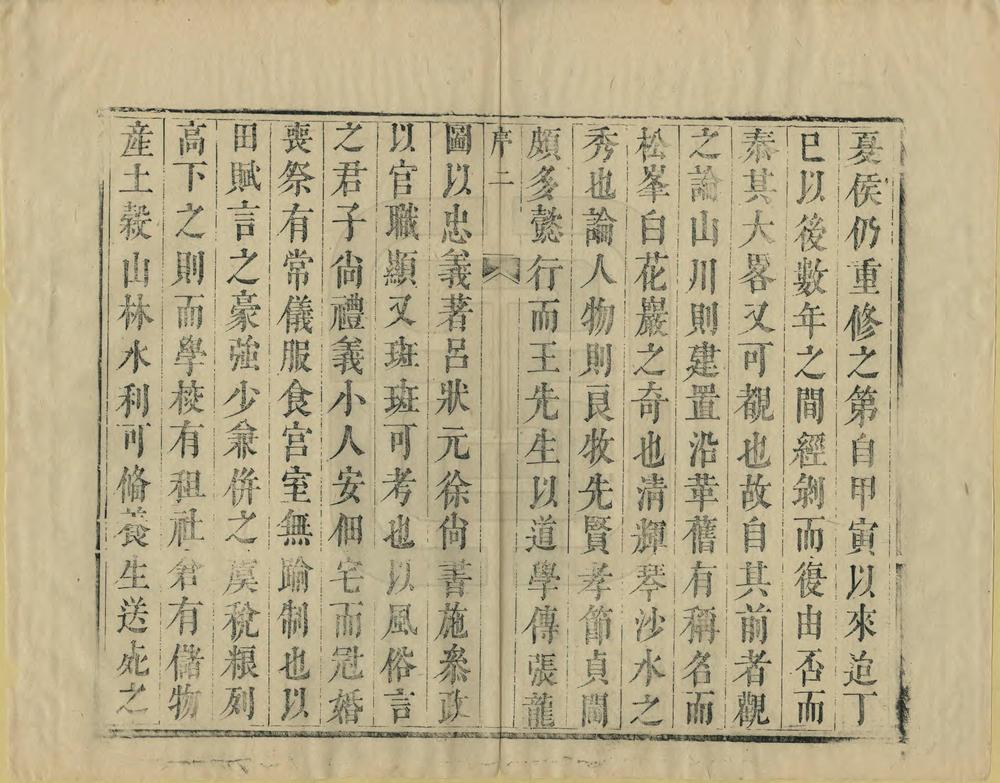 憂侯仍重修之第自甲寅以來迄丁
巳以後數年之間經剝而復由否而
泰其大畧又可覩也故自其前者觀
之論山川則建置沿革舊有稱名而
松峯白花巖之奇也清輝琴沙水之
秀也論人物則良牧先賢孝節貞閫
頗多懿行而王先生以道學傳張龍
序二
圖以忠義著呂狀元徐尙書施叅政
以官職顯又班班可考也以風俗言
之君子尙禮義小人安佃宅而冠婚
喪祭有常儀服食宮室無踰制也以
田賦言之豪強少兼併之虞稅粮列
高下之則而學校有租社倉有儲物
産土榖山林水利可脩養生送死之